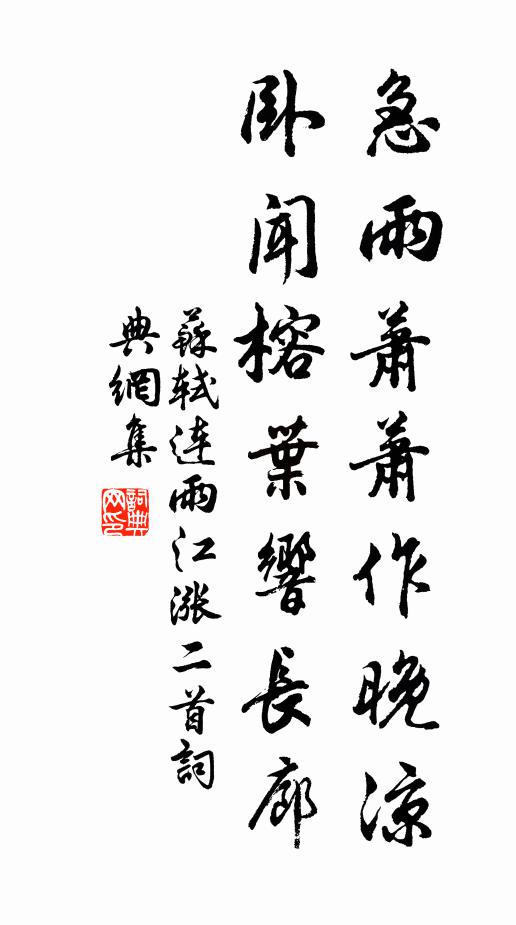 急雨蕭蕭作晚涼
臥聞榕葉響長廊
蘇軾連雨江漲二首詞
典網集
詞典
网印